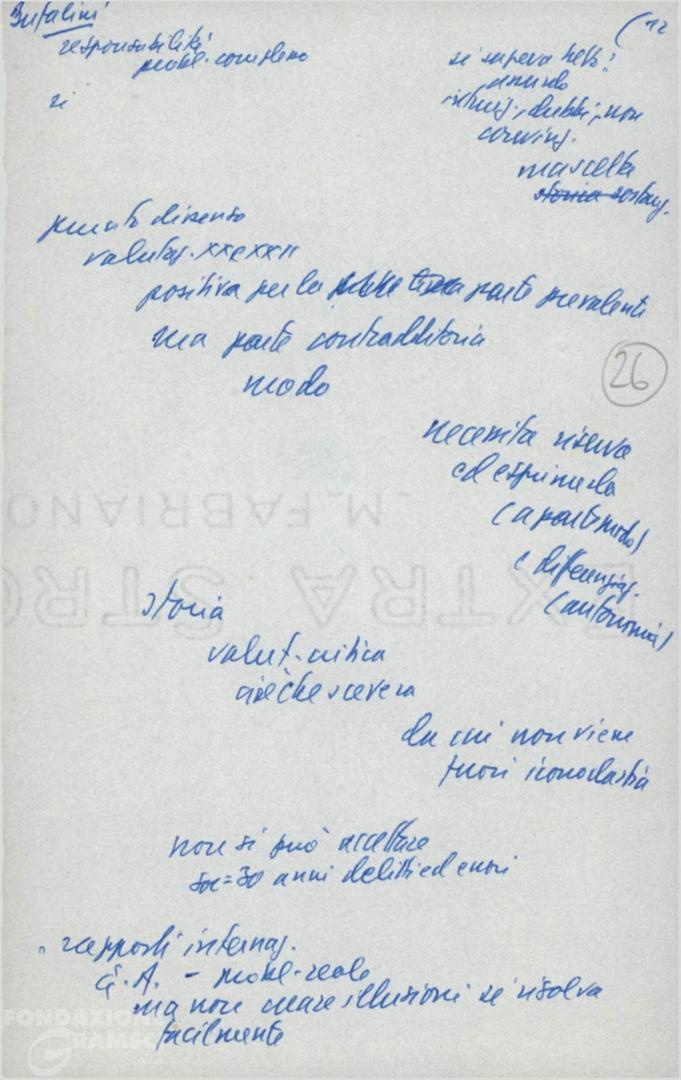 Bufalini
(12
responsabilità
probl. complesso
si
si sapeva tutto?
, dubbi, non
conving.
mascella
storica sostanz.
punto dissenso
valutaz. XX e XXII
positiva per la parte prevalente
ma parte contraddittoria
modo
26
necessità riserva
ed esprimerla
(a parte modo)
(differenziaz.
(autonomia)
storia
valut. critica
cioè che scevera
da cui non viene
fuori iconoclastia
non si può accettare
soc = 30 anni delitti ed errori
rapporti internaz.
G. A. - probl. reale
ma non creare illusioni si risolva
facilmente
M_FABRIANO
EXTRA STRO
FONDAZIONE
GRAMSCI